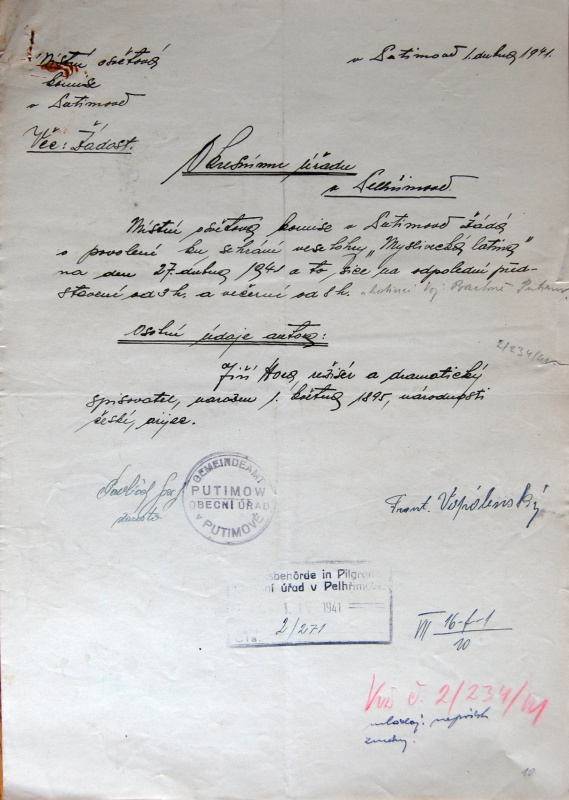 Místní osvětová
komise
v Putimově
v Putimově 1. dubna 1941.
Věc: Žádost.
Okresnímu úřadu
v Pelhřimově.
Místní osvětová komise v Putimově žádá
o povolení ku sehrání veselohry „Myslivecká latina"
na den 27. dubna 1941 a to sice na odpolední před-
stavení od 3 h. a večerní od 8 h.
2/234/41
Osobní údaje autora:
Jiří Hora, režisér a dramatický
spisovatel, narozen 1. května 1895, národnosti
český, arijec.
GEMEINDEAMT
PUTIMOW
OBECNÍ ÚŘAD
v PUTIMOVĚ
starosta
Frant. Vopálenský
sbehörde in Pilgra
ní úřad v Pelhřimově
1. IV 1941
Čís. 2/271
VII 16-f-1
10
Viz č. 2/234/41
změny.
10